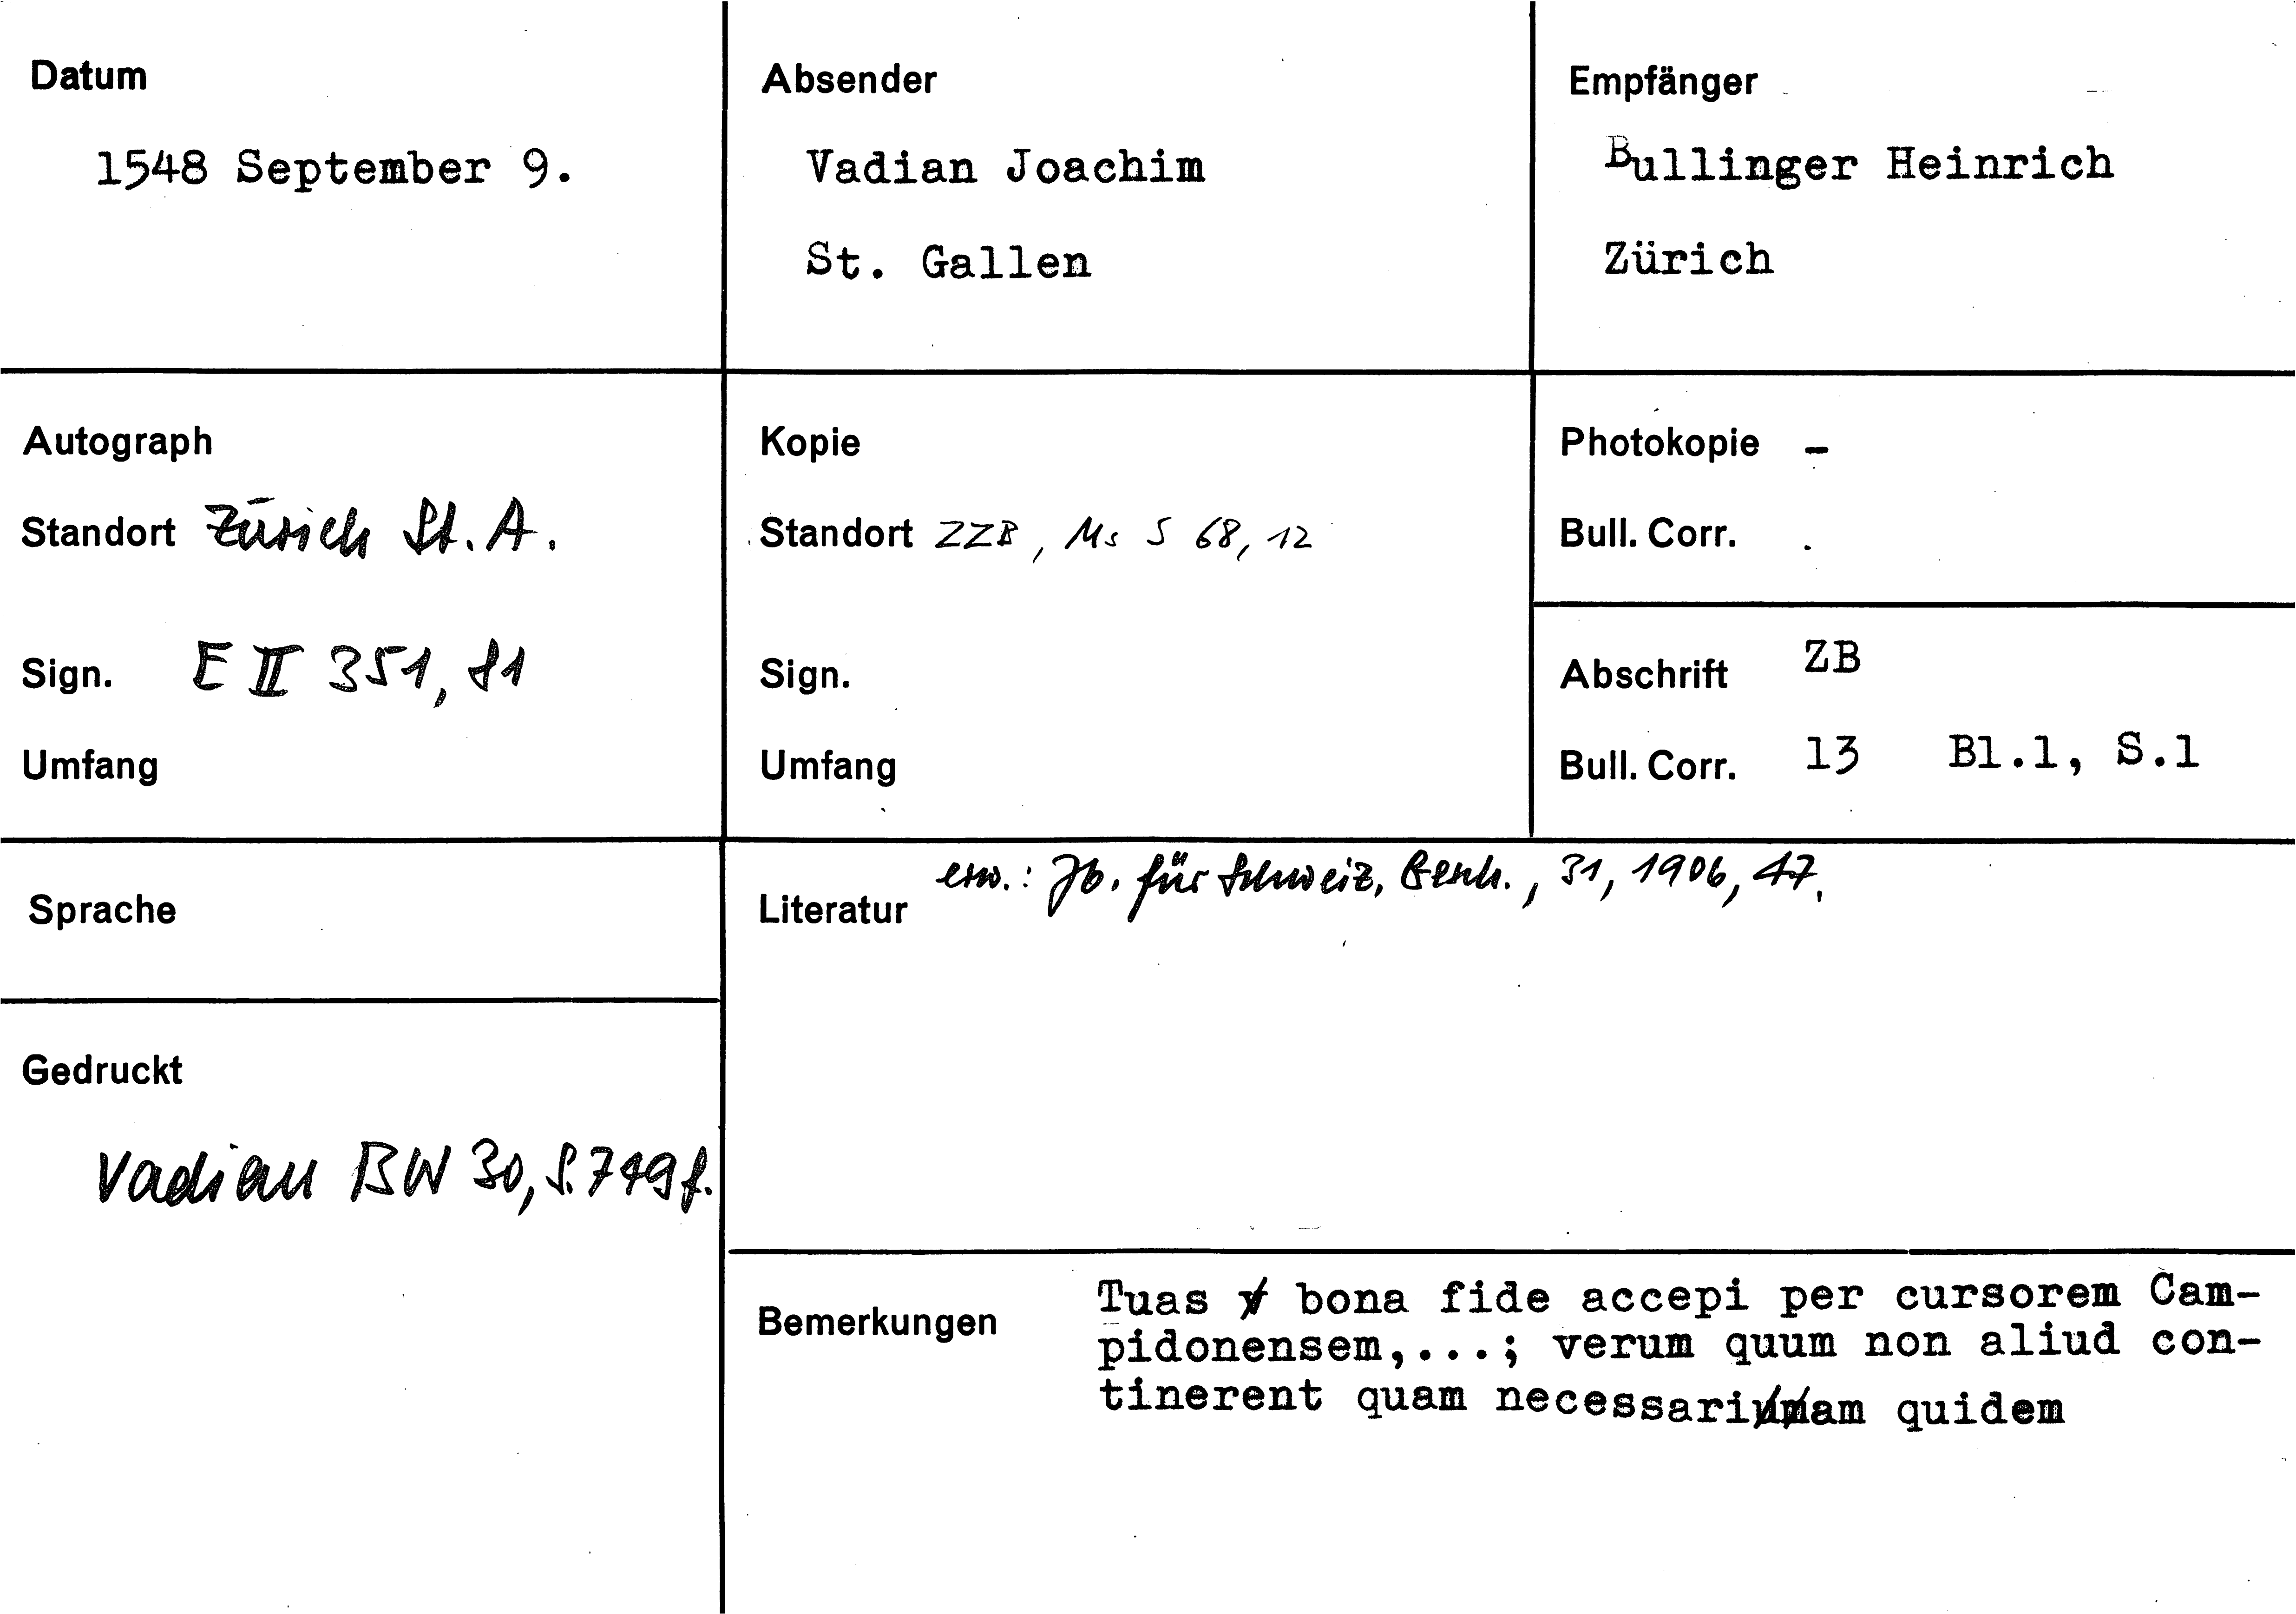 Datum
1548 September 9.
Absender
Vadian Joachim
St. Gallen
Empfänger
Bullinger Heinrich
Zürich
Autograph
Standort Zürich St. A.
Sign. E II 351, 81
Umfang
Kopie
Standort ZZB, Ms S 68, 12
Sign.
Umfang
Photokopie -
Bull. Corr.
Abschrift ZB
Bull. Corr. 13 Bl.1, S.1
Sprache
Gedruckt
Vadian BW 30, S. 749f.
Literatur
erw.: Jb. für Schweiz. Gesch., 31, 1906, 47.
Bemerkungen
Tuas bona fide accepi per cursorem Cam-
pidonensem,...; verum quum non aliud con-
tinerent quam necessariam quidem